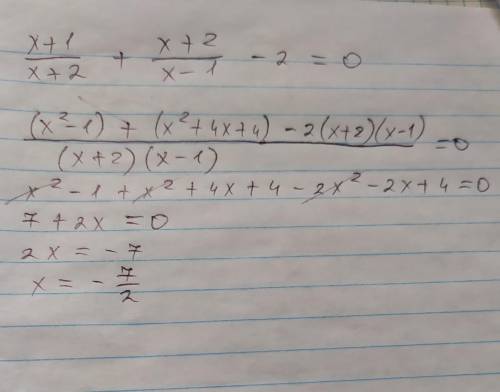 (x+1)/(x+2) + (x+2)/(x-1) - 2 = 0
((x²-1) + (x²+4x+4) - 2(x+2)(x-1))/((x+2)(x-1)) = 0
x² - 1 + x² + 4x + 4 - 2x² - 2x + 4 = 0
7 + 2x = 0
2x = - 7
x = - 7/2